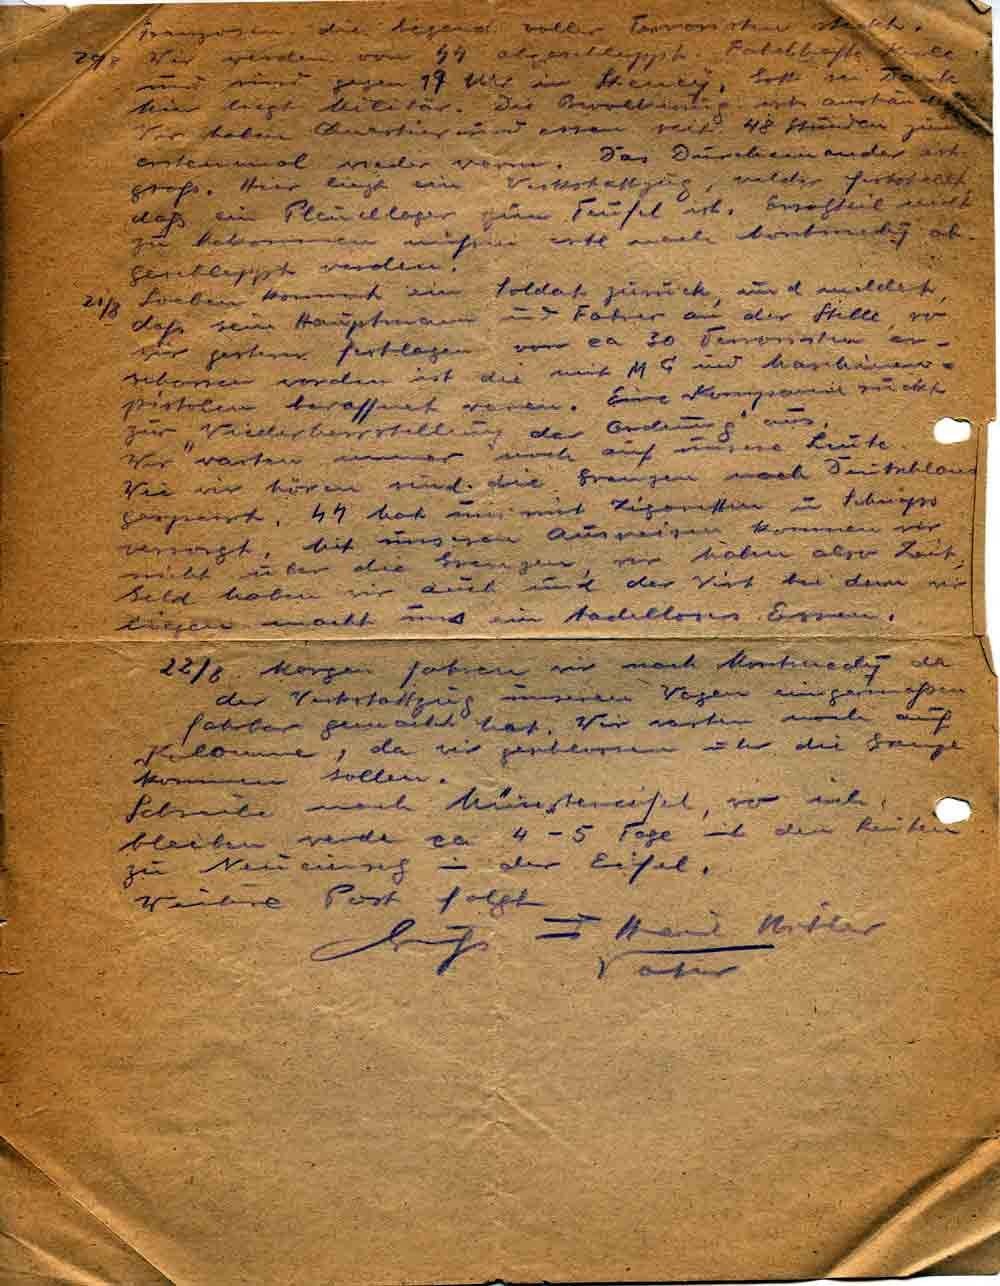 Franzosen die Gegend voller Terroristen steckt.
20/8 Wir werden von SS abgeschleppt. Fabelhafte Kerle
und sind gegen 17 Uhr in Stenay, Gott sei Dank
hier liegt Militär. Die Bevölkerung ist anständig
Wir haben Quartier und essen seit 48 Stunden zum
erstenmal wieder warm. Das Durcheinander ist
groß. Hier liegt ein Werkstattzug, welcher feststellt
daß ein Pleuellager zum Teufel ist. Ersatzteil nicht
zu bekommen müssen erst nach Montmedy ab-
geschleppt werden.
21/8 Soeben kommt ein Soldat zurück, und meldet,
daß sein Hauptmann und Fahrer an der Stelle, wo
wir gestern festlagen von ca 30 Terroristen er-
schossen worden ist die mit MG und Maschinen-
pistolen bewaffnet waren. Eine Kompanie rückt
zur "Wiederherstellung der Ordnung" aus.
Wir warten immer noch auf unsere Leute.
Wie wir hören sind die Grenzen nach Deutschland
gesperrt. SS hat uns mit Zigaretten u Schnaps
versorgt. Mit unseren Ausweisen kommen wir
nicht über die Grenzen, wir haben also Zeit,
Geld haben wir auch und der Wirt bei dem wir
liegen macht uns ein tadelloses Essen.
22/8 Morgen fahren wir nach Montmedy da
der Werkstattzug unseren Wagen einigermaßen
fahrbar gemacht hat. Wir warten noch auf
Kolonne, da wir geschlossen über die Grenze
kommen sollen.
Schreibe nach Münstereifel, wo ich
bleiben werde ca 4-5 Tage in den
zu in der Eifel.
Weitere Post folgt
Gruß
Vater